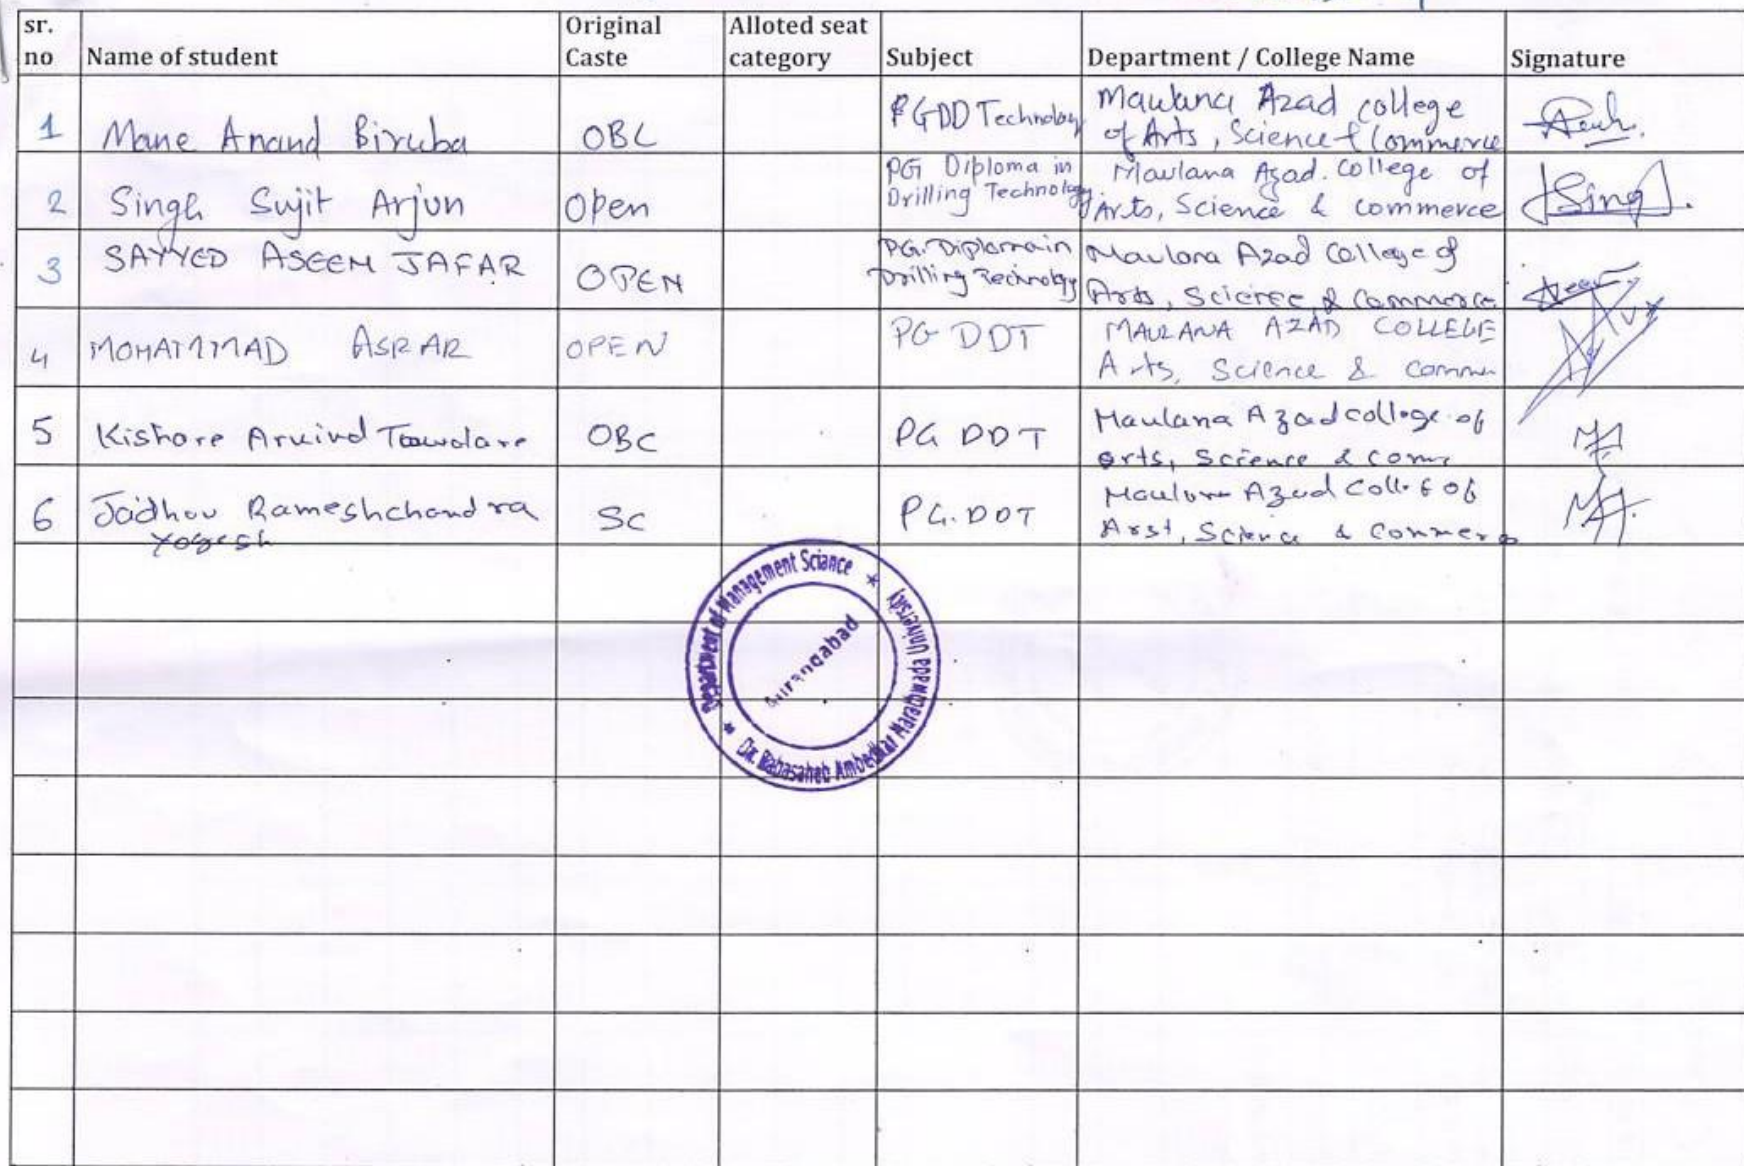 sr. no Name of student Original Caste Alloted seat category Subject Department / College Name Signature
1 Mane Anand Biruba OBC PGDD Technology Maulana Azad college
of Arts, Science & Commerce
2 Singh Sujit Arjun Open PG Diploma in Drilling Technology Maulana Azad. College of
Arts, Science & commerce Sing
3 SAYYED ASEEM JAFAR OPEN PG. Diploma in Drilling Technology Maulana Azad College of
Arts, Science & Commerce
4 MOHAMMAD ASRAR OPEN PG DDT MAULANA AZAD COLLEGE
Arts, Science & Comm
5 Kishore Arvind OBC PG DDT Maulana Azad college of
arts, Science & com
6 Jadhav Rameshchandra SC PG.DDT Maulana Azad Coll of
Yogesh Arst, Science & Commerc
Department of Management Sciance
Aurangabad
Dr. Babasaheb Ambedkar Marathwada University